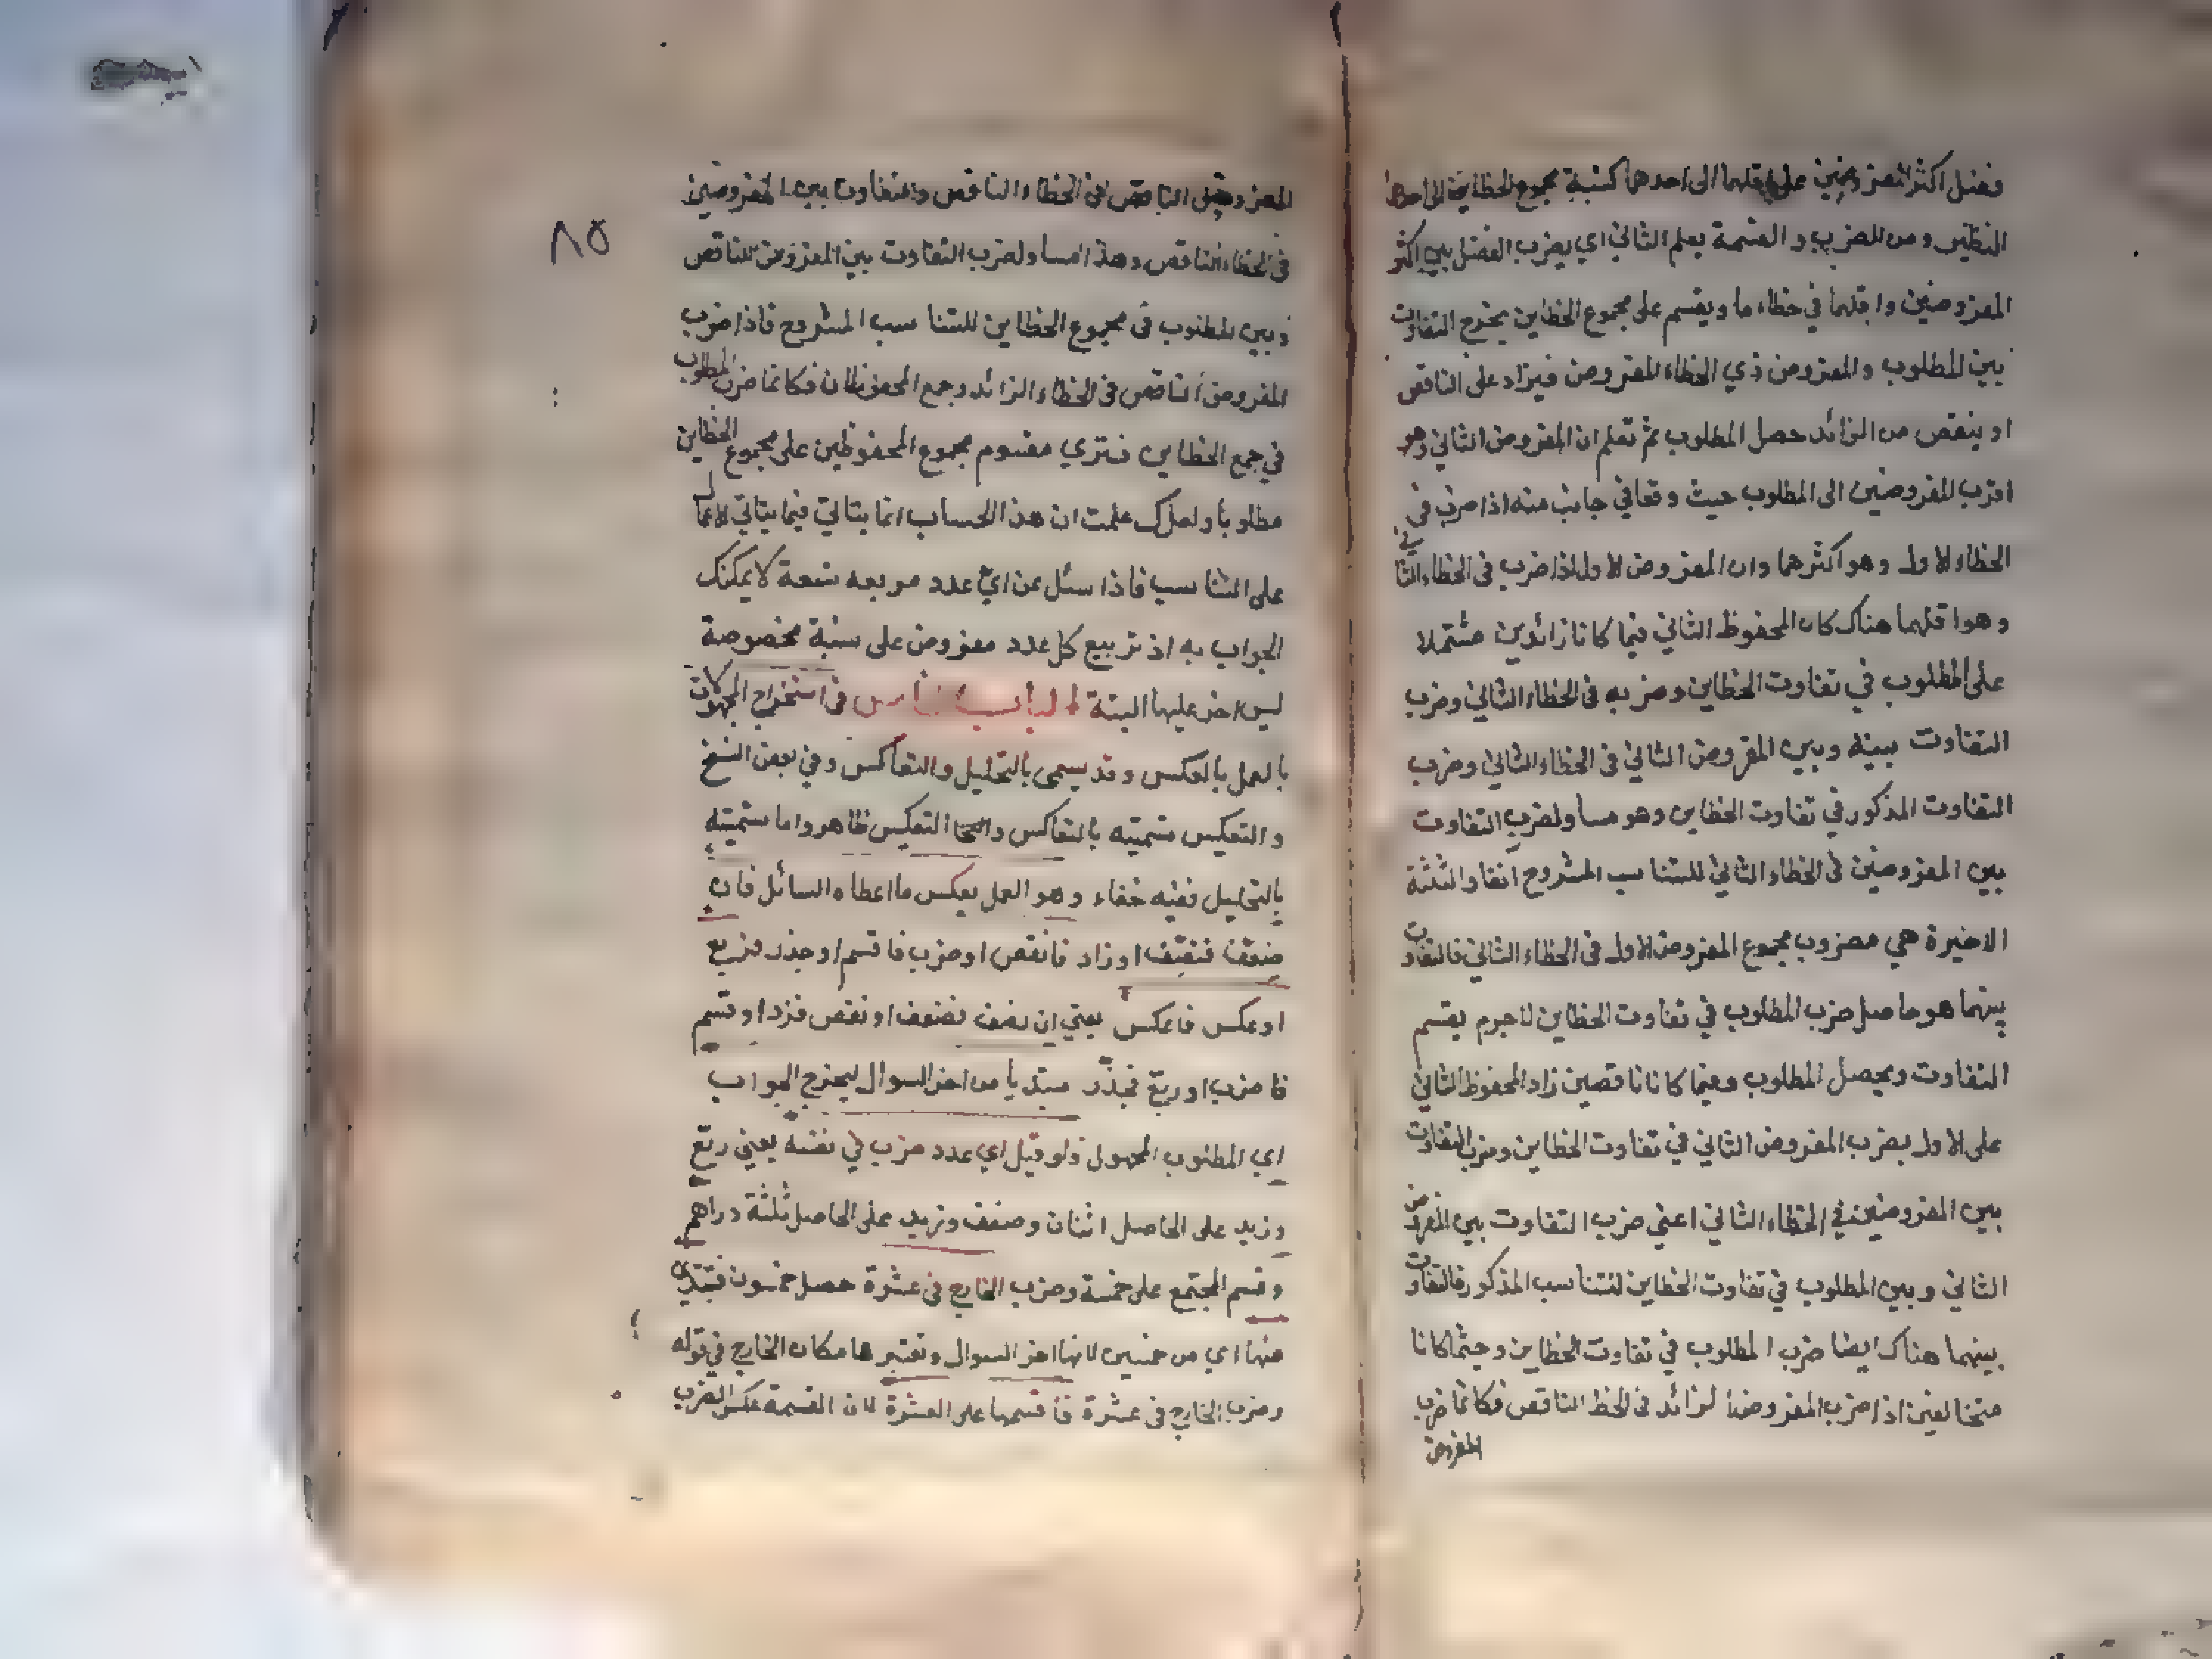 وفضل اكثر المفروضين على اقلهما الى احدهما كنسبة مجموع الخطاين الى احدهما
النظير ومن الضرب والقسمة يعلم الثاني اي يضرب الفضل بين اكثر
المفروضين واقلهما في خطاء ما ويقسم على مجموع الخطاين يخرج التفاوت
بين المطلوب والمفروض ذي الخطاء المفروض فيزاد على الناقص
او ينقص من الزائد حصل المطلوب ثم تعلم ان المفروض الثاني وهو
اقرب المفروضين الى المطلوب حيث وقعا في جانب منه اذا ضرب في
الخطاء الاول وهو اكثرهما وان المفروض الاول اذا ضرب في الخطاء الثاني
وهو اقلهما هناك كان المحفوظ الثاني فيما كانا زائدين مشتملا
على المطلوب في تفاوت الخطاين وضربه في الخطاء الثاني وضرب
التفاوت بينه وبين المفروض الثاني في الخطاء الثاني وضرب
التفاوت المذكور في تفاوت الخطاين وهو مساو لضرب التفاوت
بين المفروضين في الخطاء الثاني للتناسب المشروح انفا والثلثة
الاخيرة هي مضروب مجموع المفروض الاول في الخطاء الثاني فالتفاوت
بينهما هو حاصل ضرب المطلوب في تفاوت الخطاين لاجرم يقسم
التفاوت ويحصل المطلوب وفيما كانا ناقصين زاد المحفوظ الثاني
على الاول بضرب المفروض الثاني في تفاوت الخطاين وضرب التفاوت
بين المفروضين في الخطاء الثاني اعني ضرب التفاوت بين المفروض
الثاني وبين المطلوب في تفاوت الخطاين لتناسب المذكور فالتفاوت
بينهما هناك ايضا ضرب المطلوب في تفاوت الخطاين وحيثما كانا
متخالفين اذا ضرب المفروض الزائد في الخطا الناقص فكانما ضرب
المفروض
المفروض الناقص في الخطاء الناقص والتفاوت بين المفروضين
في الخطاء الناقص وهذا مساو لضرب التفاوت بين المفروض الناقص
وبين المطلوب في مجموع الخطاين للتناسب المشروح فاذا ضرب
المفروض الناقص في الخطاء الزائد وجمع المحفوظان فكانما ضرب المطلوب
في جمع الخطاين فترى مقسوم مجموع المحفوظين على مجموع الخطاين
مطلوبا ولعلك علمت ان هذا الحساب انما يتاتى فيما يتاتى
على التناسب فاذا سئل عن اي عدد مربعه تسعة لا يمكنك
الجواب به اذ تربيع كل عدد مفروض على نسبة مخصوصة
ليس اخر عليها البتة الباب الخامس في استخراج المجهولات
بالعمل بالعكس وقد يسمى بالتحليل والتعاكس وفي بعض النسخ
والتعكيس تسميته بالتعاكس التعكيس ظاهر واما تسميته
بالتحليل ففيه خفاء وهو العمل بعكس ما اعطاه السائل فان
ضعف فنصف او زاد فانقص او ضرب فاقسم او جذر فربع
او عكس فاعكس يعني ان نصف فضعف او نقص فزد او قسم
فاضرب او ربع فجذر مبتديا من اخر السوال ليخرج الجواب
اي المطلوب المجهول فلو قيل اي عدد ضرب في نفسه يعني ربع
وزيد على الحاصل اثنان وضعف وزيد على الحاصل ثلثة دراهم
وقسم المجتمع على خمسة وضرب الخارج في عشرة حصل خمسون فتبتدي
منها اي من خمسين لانها اخر السوال وتعتبرها مكان الخارج في قوله
وضرب الخارج في عشرة فاقسمها على العشرة لان القسمة عكس الضرب
٨٥